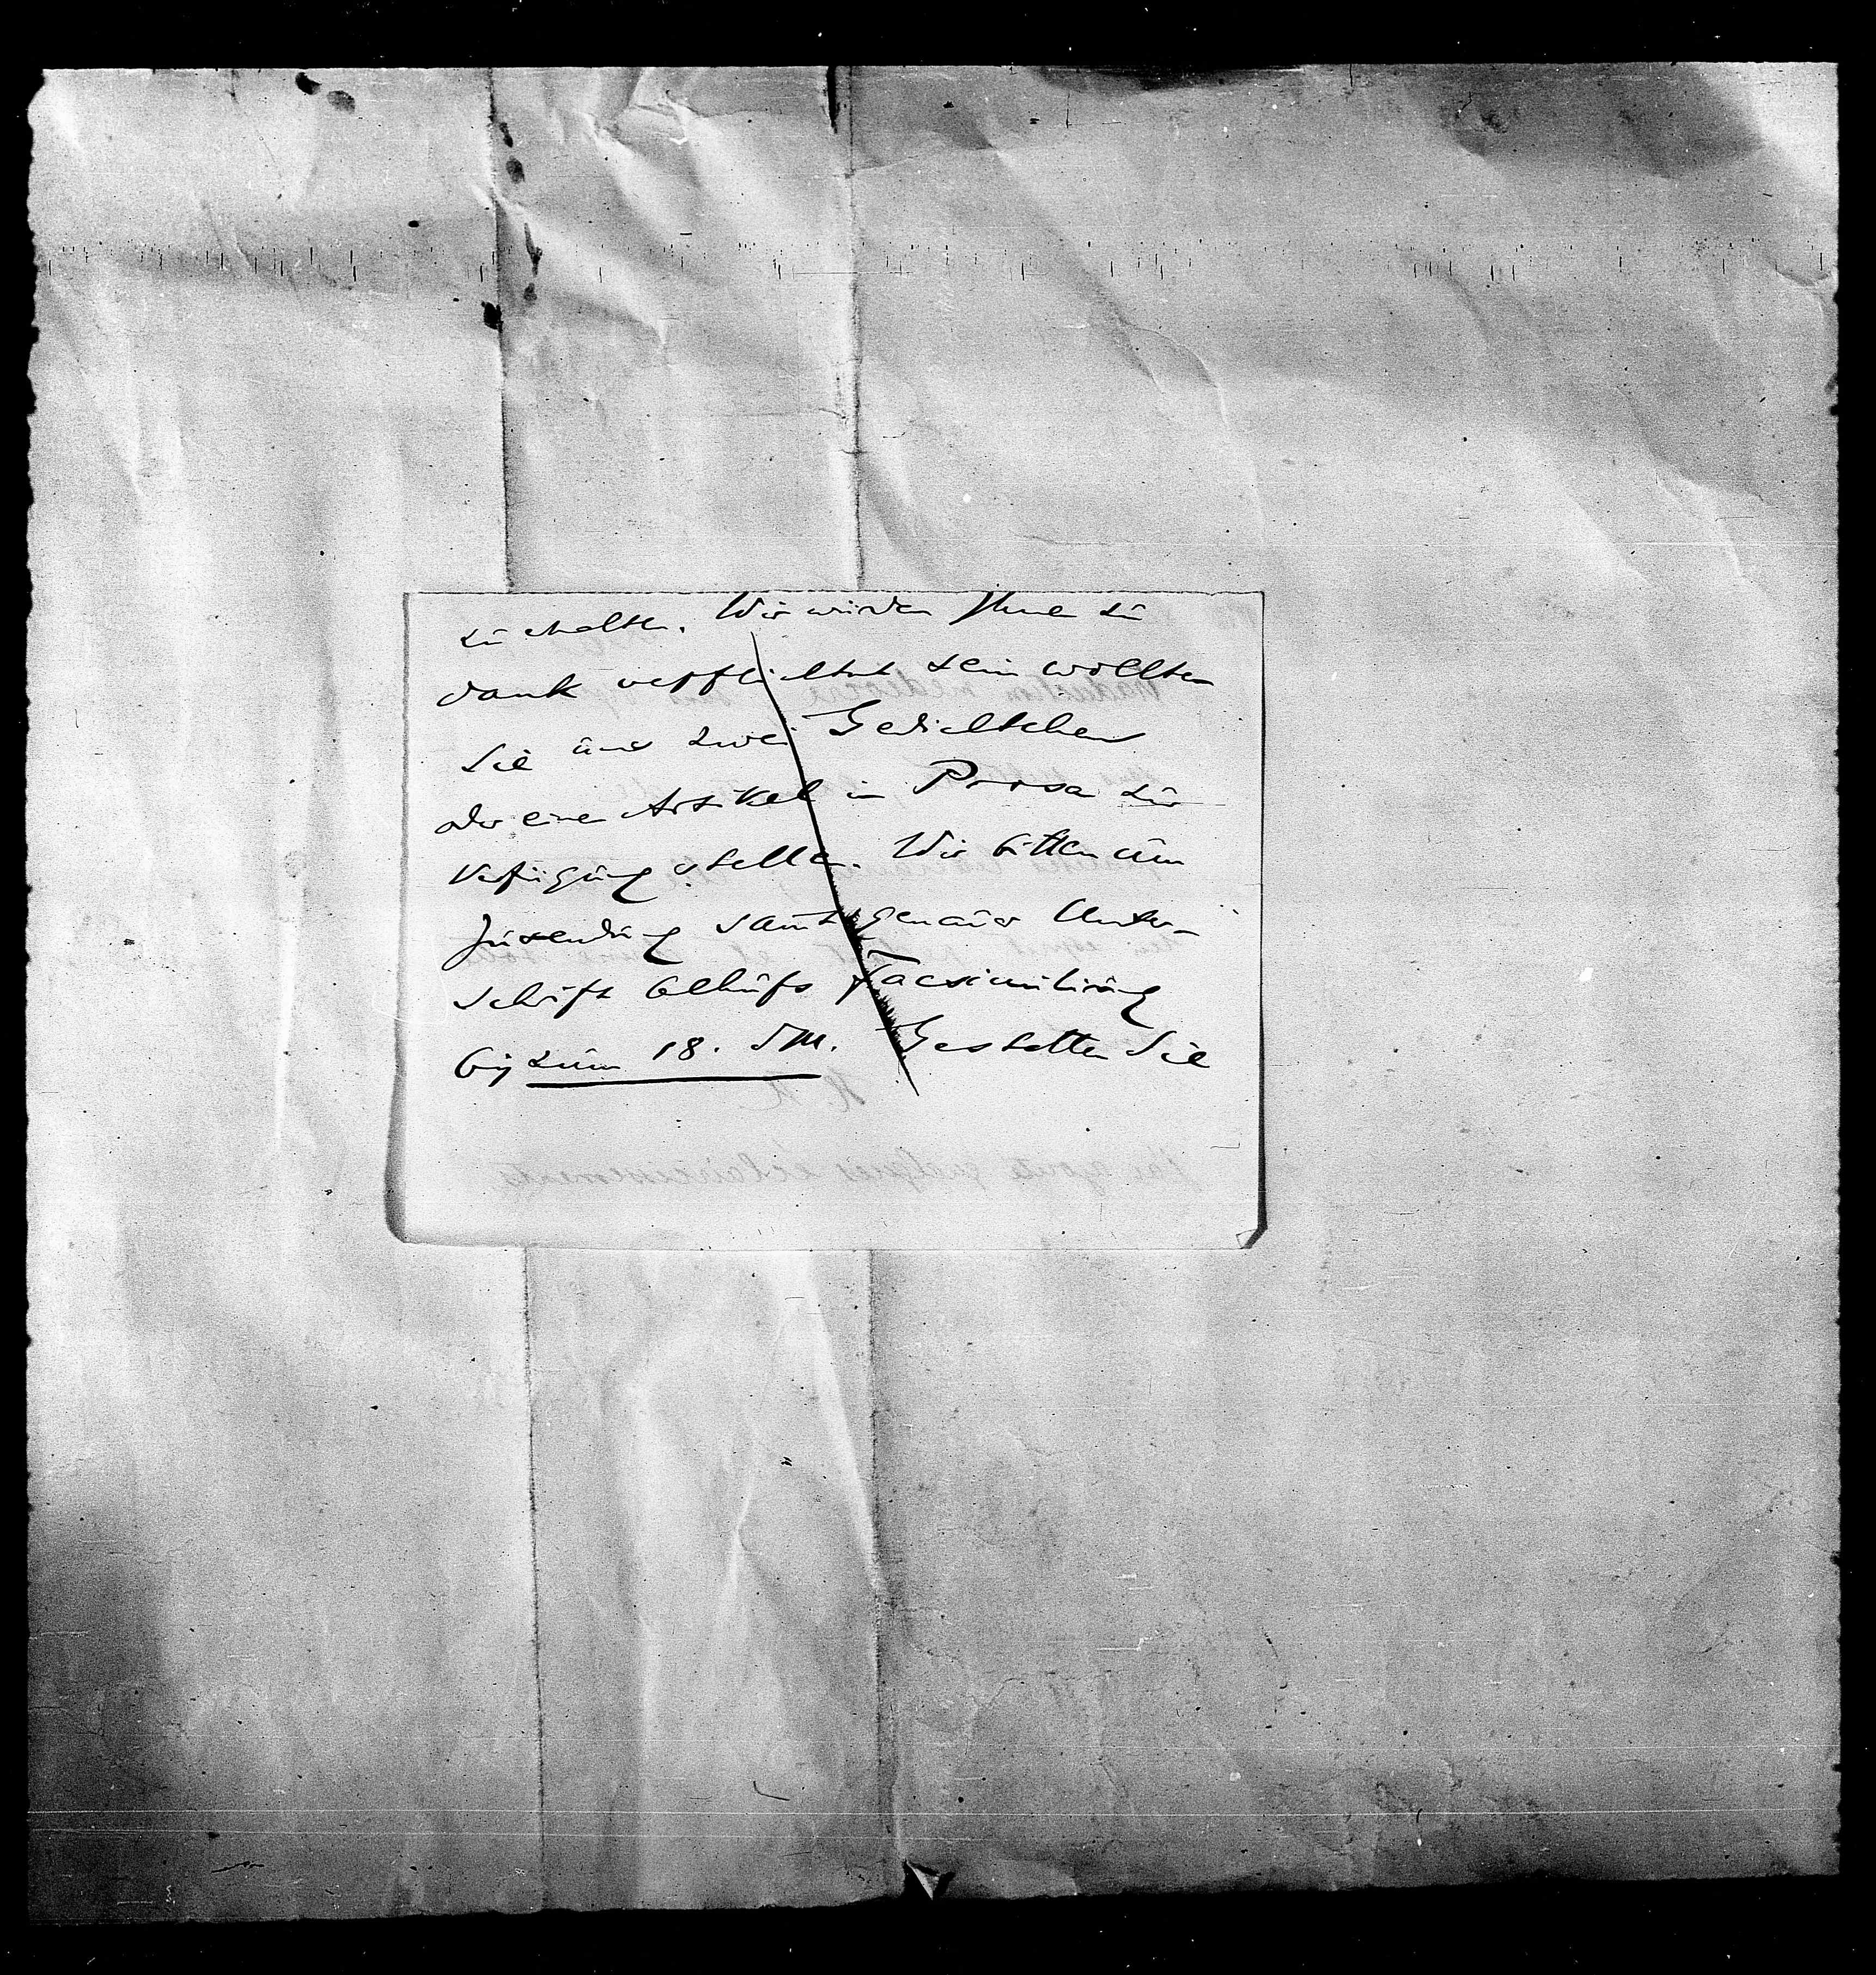 zu erhalten. Wir würden Ihnen zu
Dank verpflichtet sein wollten
Sie uns zwei Gedichtchen
oder einen Artikel in Prosa zur
Verfügung stellen. Wir bitten um
Zusendung samt genauer Unter-
schrift behufs Facsimilirung
bis zum 18. d M. Gestatten Sie